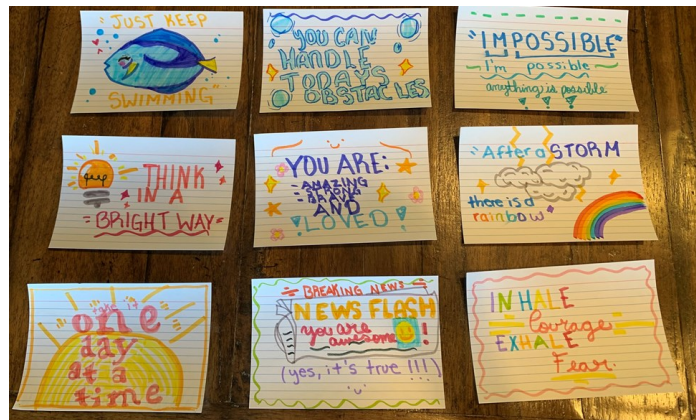 "JUST KEEP
SWIMMING"
YOU CAN
HANDLE
TODAYS
OBSTACLES
"IMPOSSIBLE"
I'm possible
anything is possible
THINK
IN A
BRIGHT WAY
YOU ARE:
AMAZING
STRONG
BRAVE
AND
LOVED
After a STORM
there is a
rainbow
take it
one
day
at a
time
BREAKING NEWS
NEWS FLASH
you are
awesome !
(yes, it's true !!!)
INHALE
Courage
EXHALE
Fear.